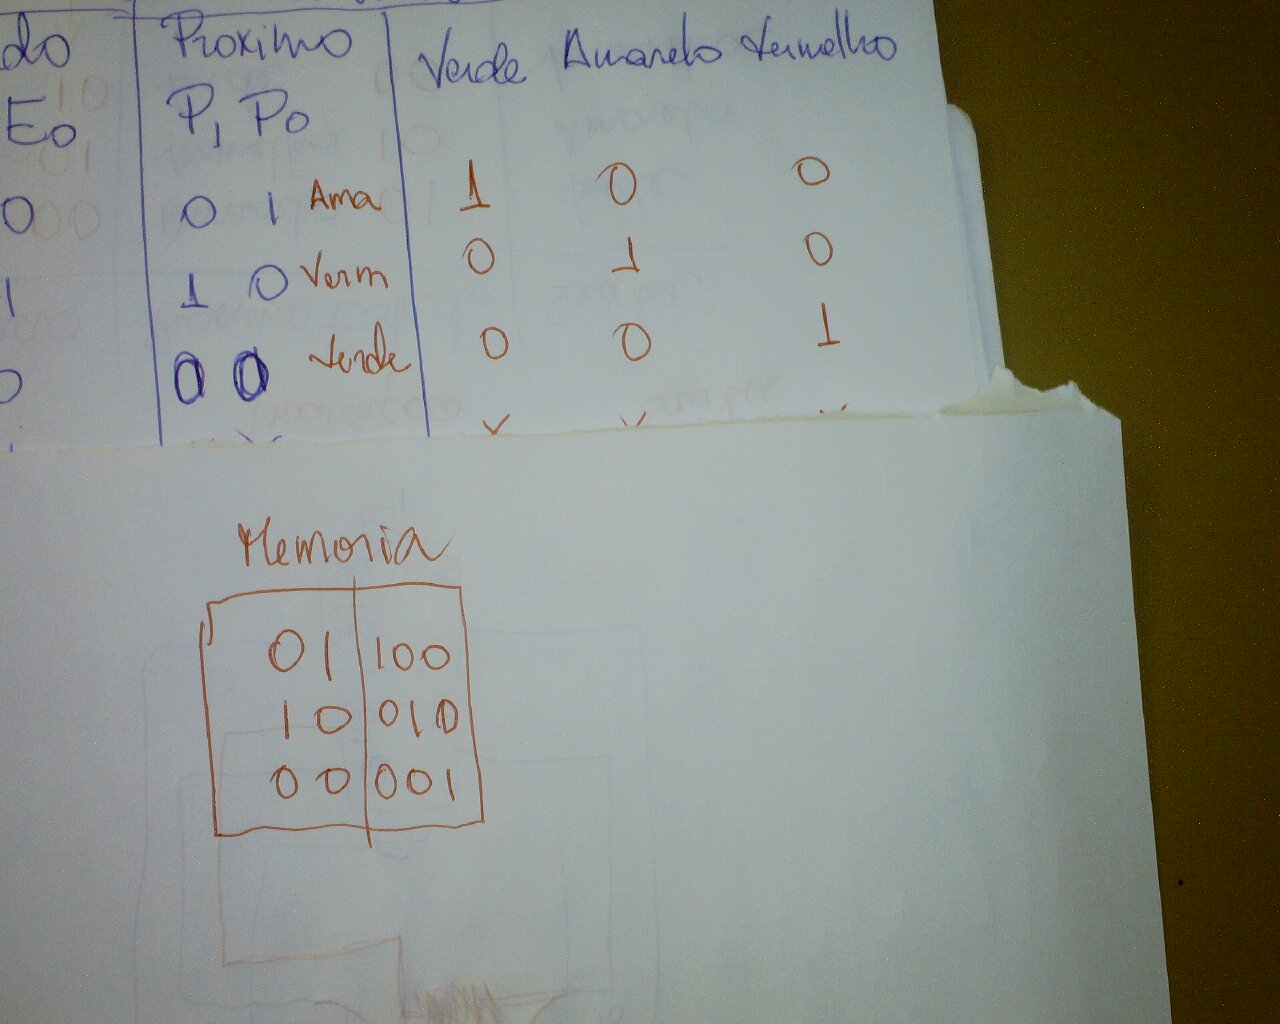 do Proximo Verde Amarelo Vermelho
E0 P1 P0
0 0 1 Ama 1 0 0
1 1 0 Verm 0 1 0
0 0 0 Verde 0 0 1
Memoria
01 100
10 010
00 001